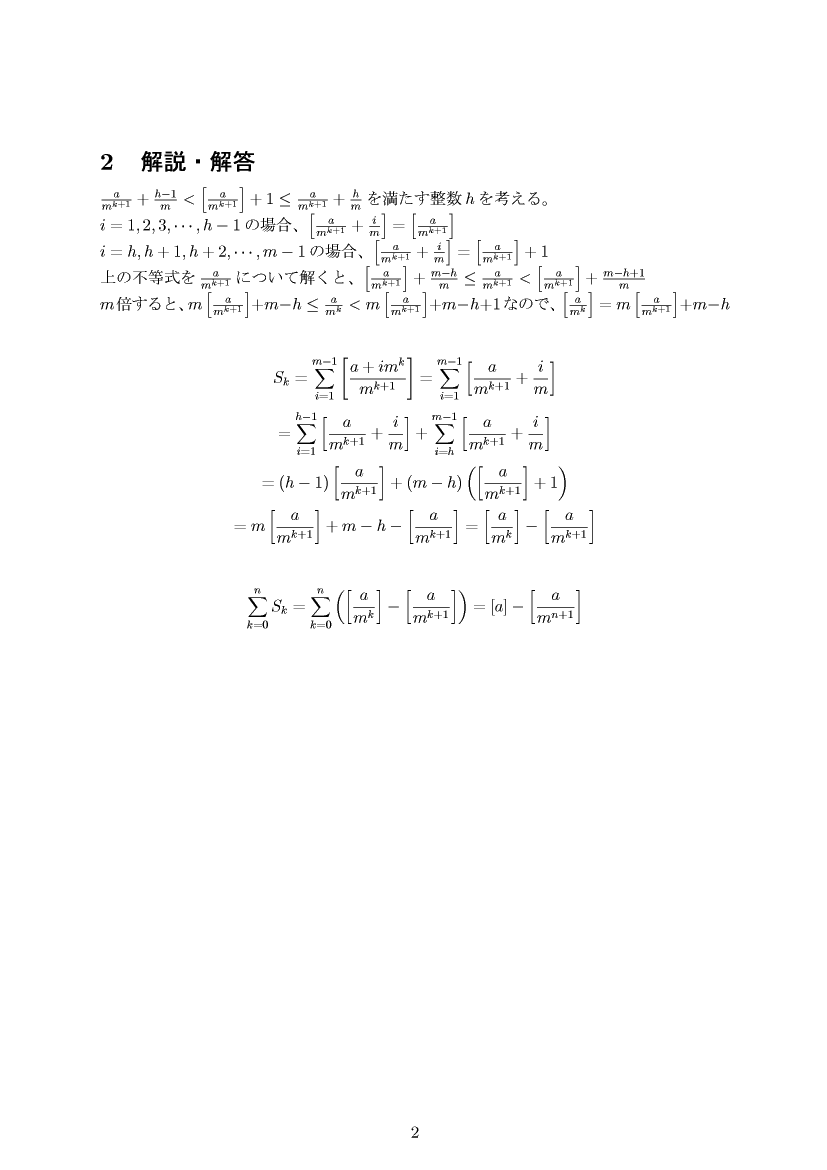 2 解説・解答
$\frac{a}{m^{k+1}} + \frac{h-1}{m} < \left[\frac{a}{m^{k+1}}\right] + 1 \leq \frac{a}{m^{k+1}} + \frac{h}{m}$ を満たす整数 $h$ を考える。
$i = 1, 2, 3, \cdots, h-1$ の場合、$\left[\frac{a}{m^{k+1}} + \frac{i}{m}\right] = \left[\frac{a}{m^{k+1}}\right]$
$i = h, h+1, h+2, \cdots, m-1$ の場合、$\left[\frac{a}{m^{k+1}} + \frac{i}{m}\right] = \left[\frac{a}{m^{k+1}}\right] + 1$
上の不等式を $\frac{a}{m^{k+1}}$ について解くと、$\left[\frac{a}{m^{k+1}}\right] + \frac{m-h}{m} \leq \frac{a}{m^{k+1}} < \left[\frac{a}{m^{k+1}}\right] + \frac{m-h+1}{m}$
$m$ 倍すると、$m\left[\frac{a}{m^{k+1}}\right] + m - h \leq \frac{a}{m^k} < m\left[\frac{a}{m^{k+1}}\right] + m - h + 1$ なので、$\left[\frac{a}{m^k}\right] = m\left[\frac{a}{m^{k+1}}\right] + m - h$
$S_k = \sum_{i=1}^{m-1} \left[\frac{a + im^k}{m^{k+1}}\right] = \sum_{i=1}^{m-1} \left[\frac{a}{m^{k+1}} + \frac{i}{m}\right]$
$= \sum_{i=1}^{h-1} \left[\frac{a}{m^{k+1}} + \frac{i}{m}\right] + \sum_{i=h}^{m-1} \left[\frac{a}{m^{k+1}} + \frac{i}{m}\right]$
$= (h-1)\left[\frac{a}{m^{k+1}}\right] + (m-h)\left(\left[\frac{a}{m^{k+1}}\right] + 1\right)$
$= m\left[\frac{a}{m^{k+1}}\right] + m - h - \left[\frac{a}{m^{k+1}}\right] = \left[\frac{a}{m^k}\right] - \left[\frac{a}{m^{k+1}}\right]$
$\sum_{k=0}^{n} S_k = \sum_{k=0}^{n} \left(\left[\frac{a}{m^k}\right] - \left[\frac{a}{m^{k+1}}\right]\right) = [a] - \left[\frac{a}{m^{n+1}}\right]$
2